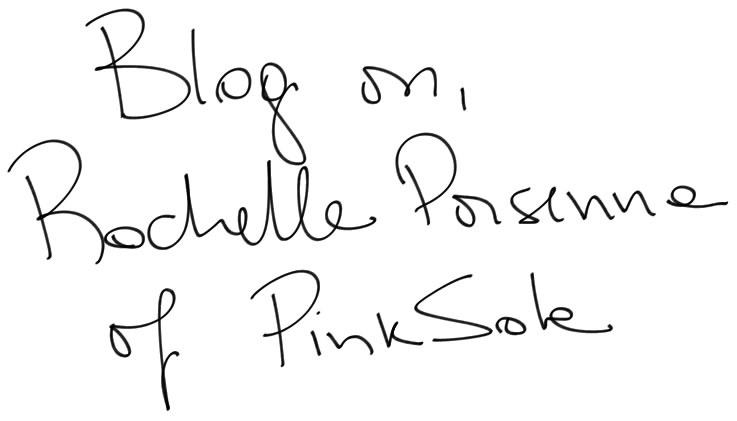 Blog on,
Rochelle Porsenna
of PinkSole